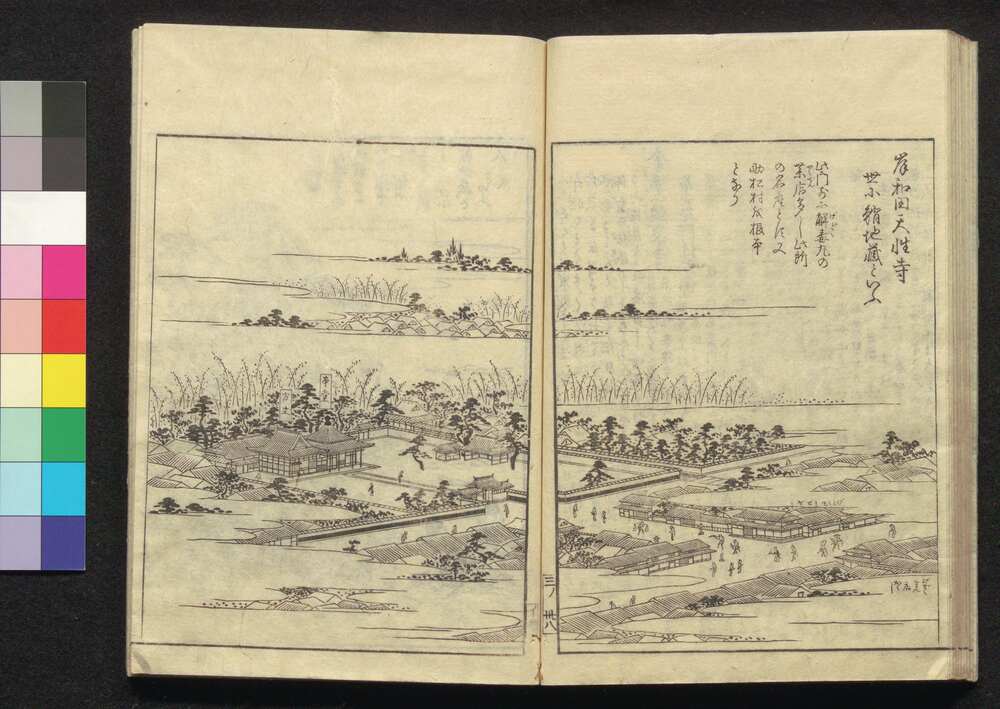 岸和田天性寺
世に蛸地蔵といふ
此門前に解毒丸の
薬店多し此所
の名産とす又
助松村を根本
とせり
本堂
三ノ卅八